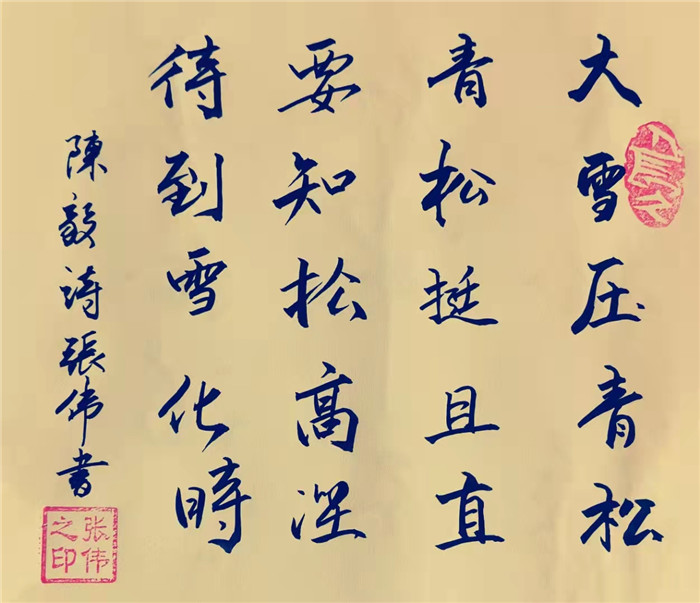 大雪压青松
青松挺且直
要知松高洁
待到雪化時
陳毅诗張伟書
张伟之印